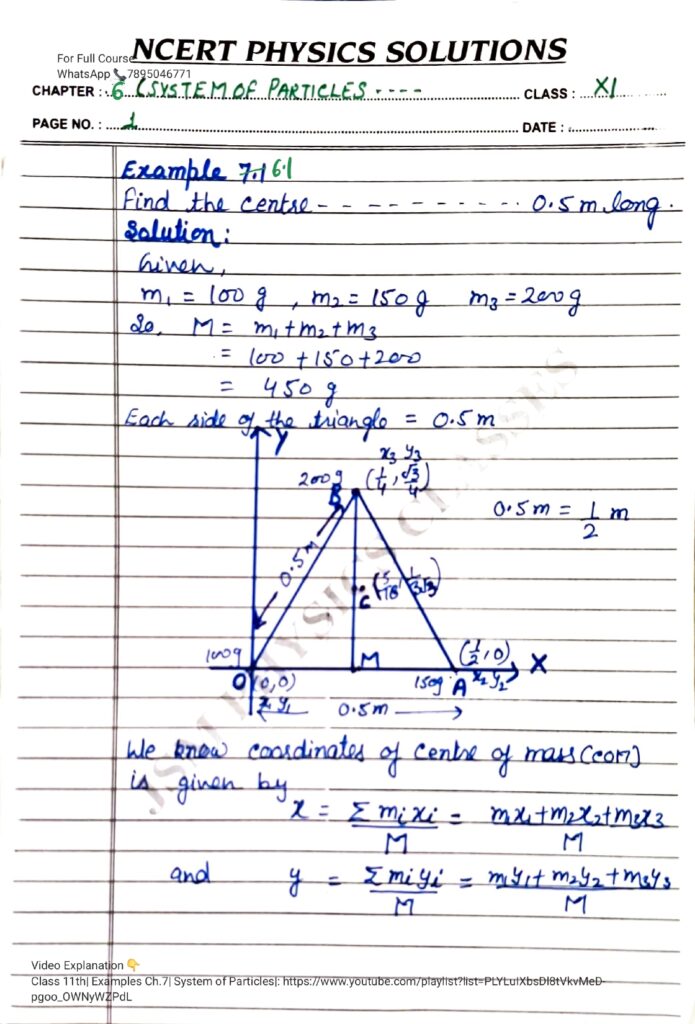 NCERT PHYSICS SOLUTIONS
For Full Course
WhatsApp 📞7895046771
CHAPTER : 6 (SYSTEM OF PARTICLES ---- CLASS : XI
PAGE NO. : 1 DATE :
Example 7.1 6.1
Find the centre - - - - - - - - - - 0.5 m long.
Solution:
Given,
m₁ = 100 g , m₂ = 150 g m₃ = 200 g
So, M = m₁ + m₂ + m₃
= 100 + 150 + 200
= 450 g
Each side of the triangle = 0.5 m
Y
x₃ y₃
200 g B (1/4, √3/4)
0.5 m = 1/2 m
0.5 m
C (5/18, 1/3√3)
100g M (1/2, 0) X
O (0,0) 150g A x₂ y₂
x₁ y₁ 0.5 m
We know coordinates of centre of mass (COM)
is given by
x = Σ mᵢxᵢ / M = m₁x₁ + m₂x₂ + m₃x₃ / M
and y = Σ mᵢyᵢ / M = m₁y₁ + m₂y₂ + m₃y₃ / M
JSM PHYSICS CLASSES
Video Explanation 👇
Class 11th| Examples Ch.7| System of Particles|: https://www.youtube.com/playlist?list=PLYLuIXbsDl8tVkvMeD-
pgoo_OWNyWZPdL